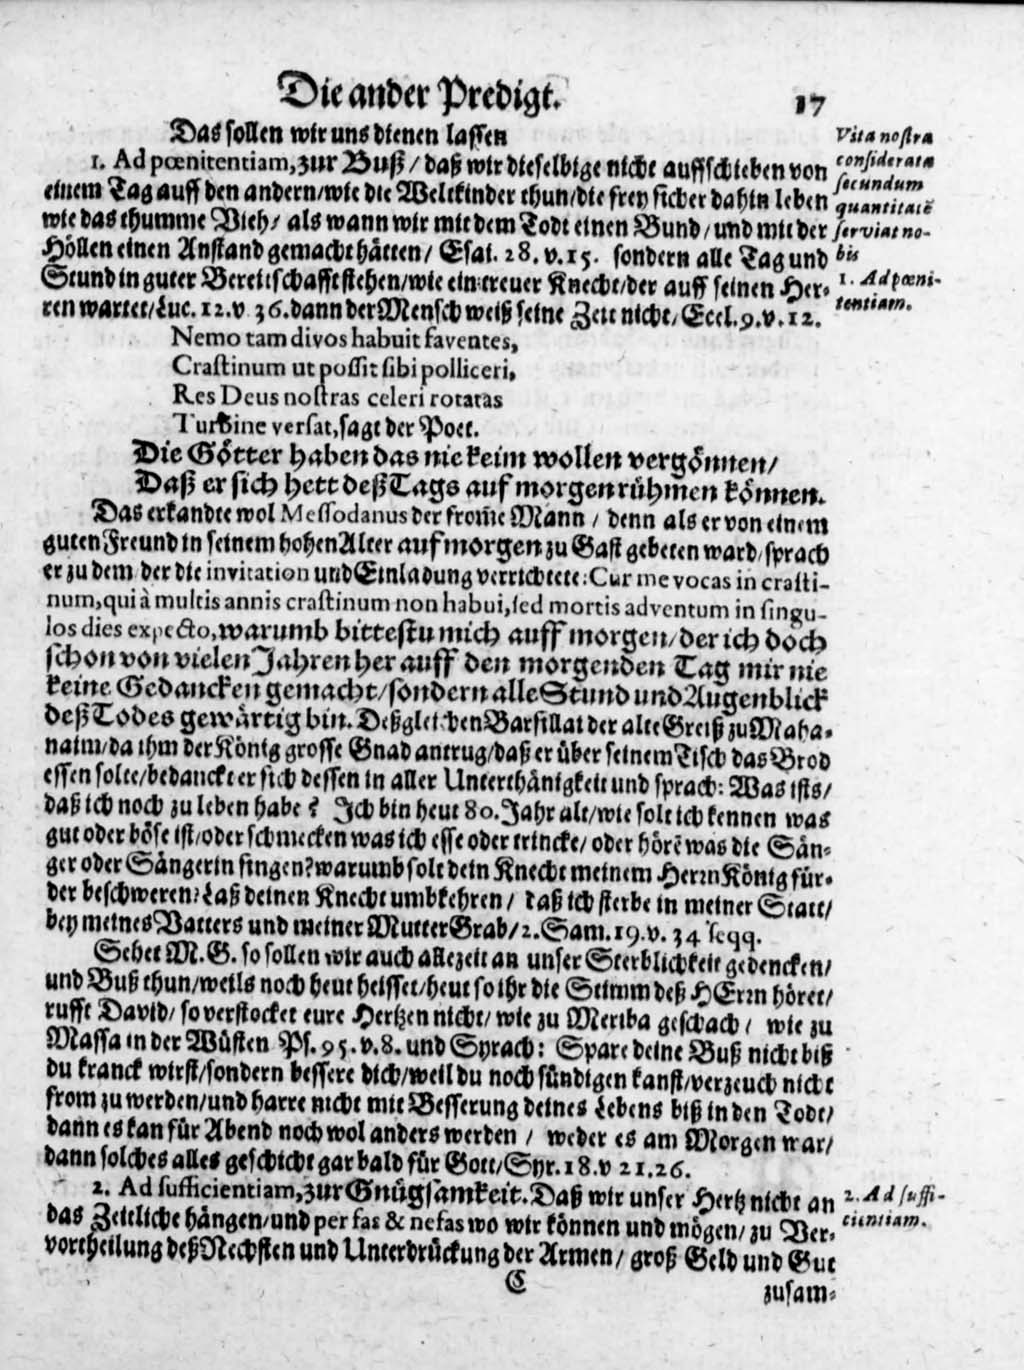 Die ander Predigt. 17
Das sollen wir uns dienen lassen
1. Ad pœnitentiam, zur Buß / daß wir dieselbige nicht auffschieben von
einem Tag auff den andern/wie die Weltkinder thun/die frey sicher dahin leben
wie das thumme Vieh/ als wann wir mit dem Todt einen Bund/ und mit der
Höllen einen Anstand gemacht hätten/ Esai. 28. v. 15. sondern alle Tag und
Stund in guter Bereitschafft stehen/wie ein treuer Knecht/der auff seinen Her-
ren wartet/Luc. 12. v 36. dann der Mensch weiß seine Zeit nicht/ Eccl. 9. v. 12.
Vita nostra
considerata
secundum
quantitatē
serviat no-
bis
1. Ad pœni-
tentiam.
Nemo tam divos habuit faventes,
Crastinum ut possit sibi polliceri,
Res Deus nostras celeri rotatas
Turbine versat, sagt der Poet.
Die Götter haben das nie keim wollen vergönnen/
Daß er sich hett deß Tags auf morgen rühmen können.
Das erkandte wol Messodanus der from̃e Mann / denn als er von einem
guten Freund in seinem hohen Alter auf morgen zu Gast gebeten ward/ sprach
er zu dem/ der die invitation und Einladung verrichtete: Cur me vocas in crasti-
num, qui à multis annis crastinum non habui, sed mortis adventum in singu-
los dies expecto, warumb bittestu mich auff morgen/ der ich doch
schon von vielen Jahren her auff den morgenden Tag mir nie
keine Gedancken gemacht/sondern alle Stund und Augenblick
deß Todes gewärtig bin. Deßgleichen Barsillai der alte Greiß zu Maha-
naim/da ihm der König grosse Gnad antrug/daß er über seinem Tisch das Brod
essen solte/bedanckt er sich dessen in aller Unterthänigkeit und sprach: Was ists/
daß ich noch zu leben habe? Ich bin heut 80. Jahr alt/wie solt ich kennen was
gut oder böse ist/oder schmecken was ich esse oder trincke/ oder hörē was die Sän-
ger oder Sängerin singen? warumb solt dein Knecht meinem Herrn König für-
der beschweren? Laß deinen Knecht umbkehren/ daß ich sterbe in meiner Statt/
bey meines Vatters und meiner Mutter Grab/ 2. Sam. 19. v. 34 seqq.
Sehet M. G. so sollen wir auch allezeit an unser Sterblichkeit gedencken/
und Buß thun/weils noch heut heisset/heut so ihr die Stimm deß HErrn höret/
rufft David/ so verstocket eure Hertzen nicht/ wie zu Meriba geschach / wie zu
Massa in der Wüsten Ps. 95. v. 8. und Syrach: Spare deine Buß nicht biß
du kranck wirst/sondern bessere dich/weil du noch sündigen kanst/verzeuch nicht
from zu werden/und harre nicht mit Besserung deines Lebens biß in den Todt/
dann es kan für Abend noch wol anders werden / weder es am Morgen war/
dann solches alles geschicht gar bald für Gott/Syr. 18. v 21. 26.
2. Ad sufficientiam, zur Gnügsamkeit. Daß wir unser Hertz nicht an
das Zeitliche hängen/und per fas & nefas wo wir können und mögen/ zu Ver-
vortheilung deß Nechsten und Unterdrückung der Armen / groß Geld und Gut
2. Ad suffi-
cientiam.
C
zusam-